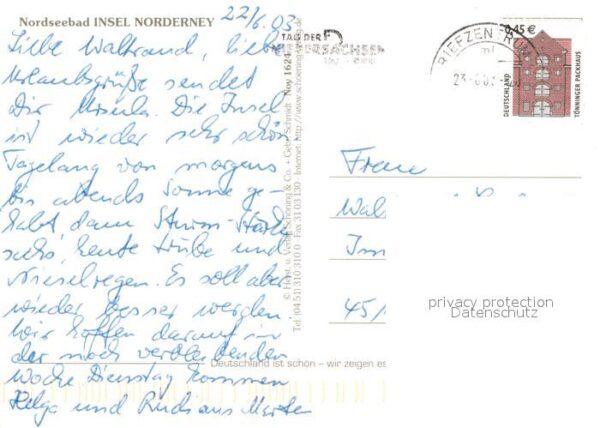 Nordseebad INSEL NORDERNEY
22/6.03
Liebe Waltraud, liebe
Urlaubsgrüße sendet
Dir Ursula. Die Insel
ist wieder sehr schön
Tagelang von morgens
bis abends Sonne ge-
habt, dann Sturm-Stärke
sechs, heute trübe und
Nieselregen. Es soll aber
wieder besser werden.
Wir hoffen darauf in
der noch verbleibenden
Woche Dienstag kommen
Helga und Rudi aus
TAG DER
NIEDERSACHSEN
BRIEFZENTRUM
0,45 €
DEUTSCHLAND
TÖNNINGER PACKHAUS
© Horst u. Verlag Schöning & Co. + Gebr. Schmidt Noy 1624
Tel. (04 51) 310 310 0 Fax 31 03 130 Internet: http://www.schoening-verlag.de
Frau
Wal
Im
45/
privacy protection
Datenschutz
Deutschland ist schön – wir zeigen es